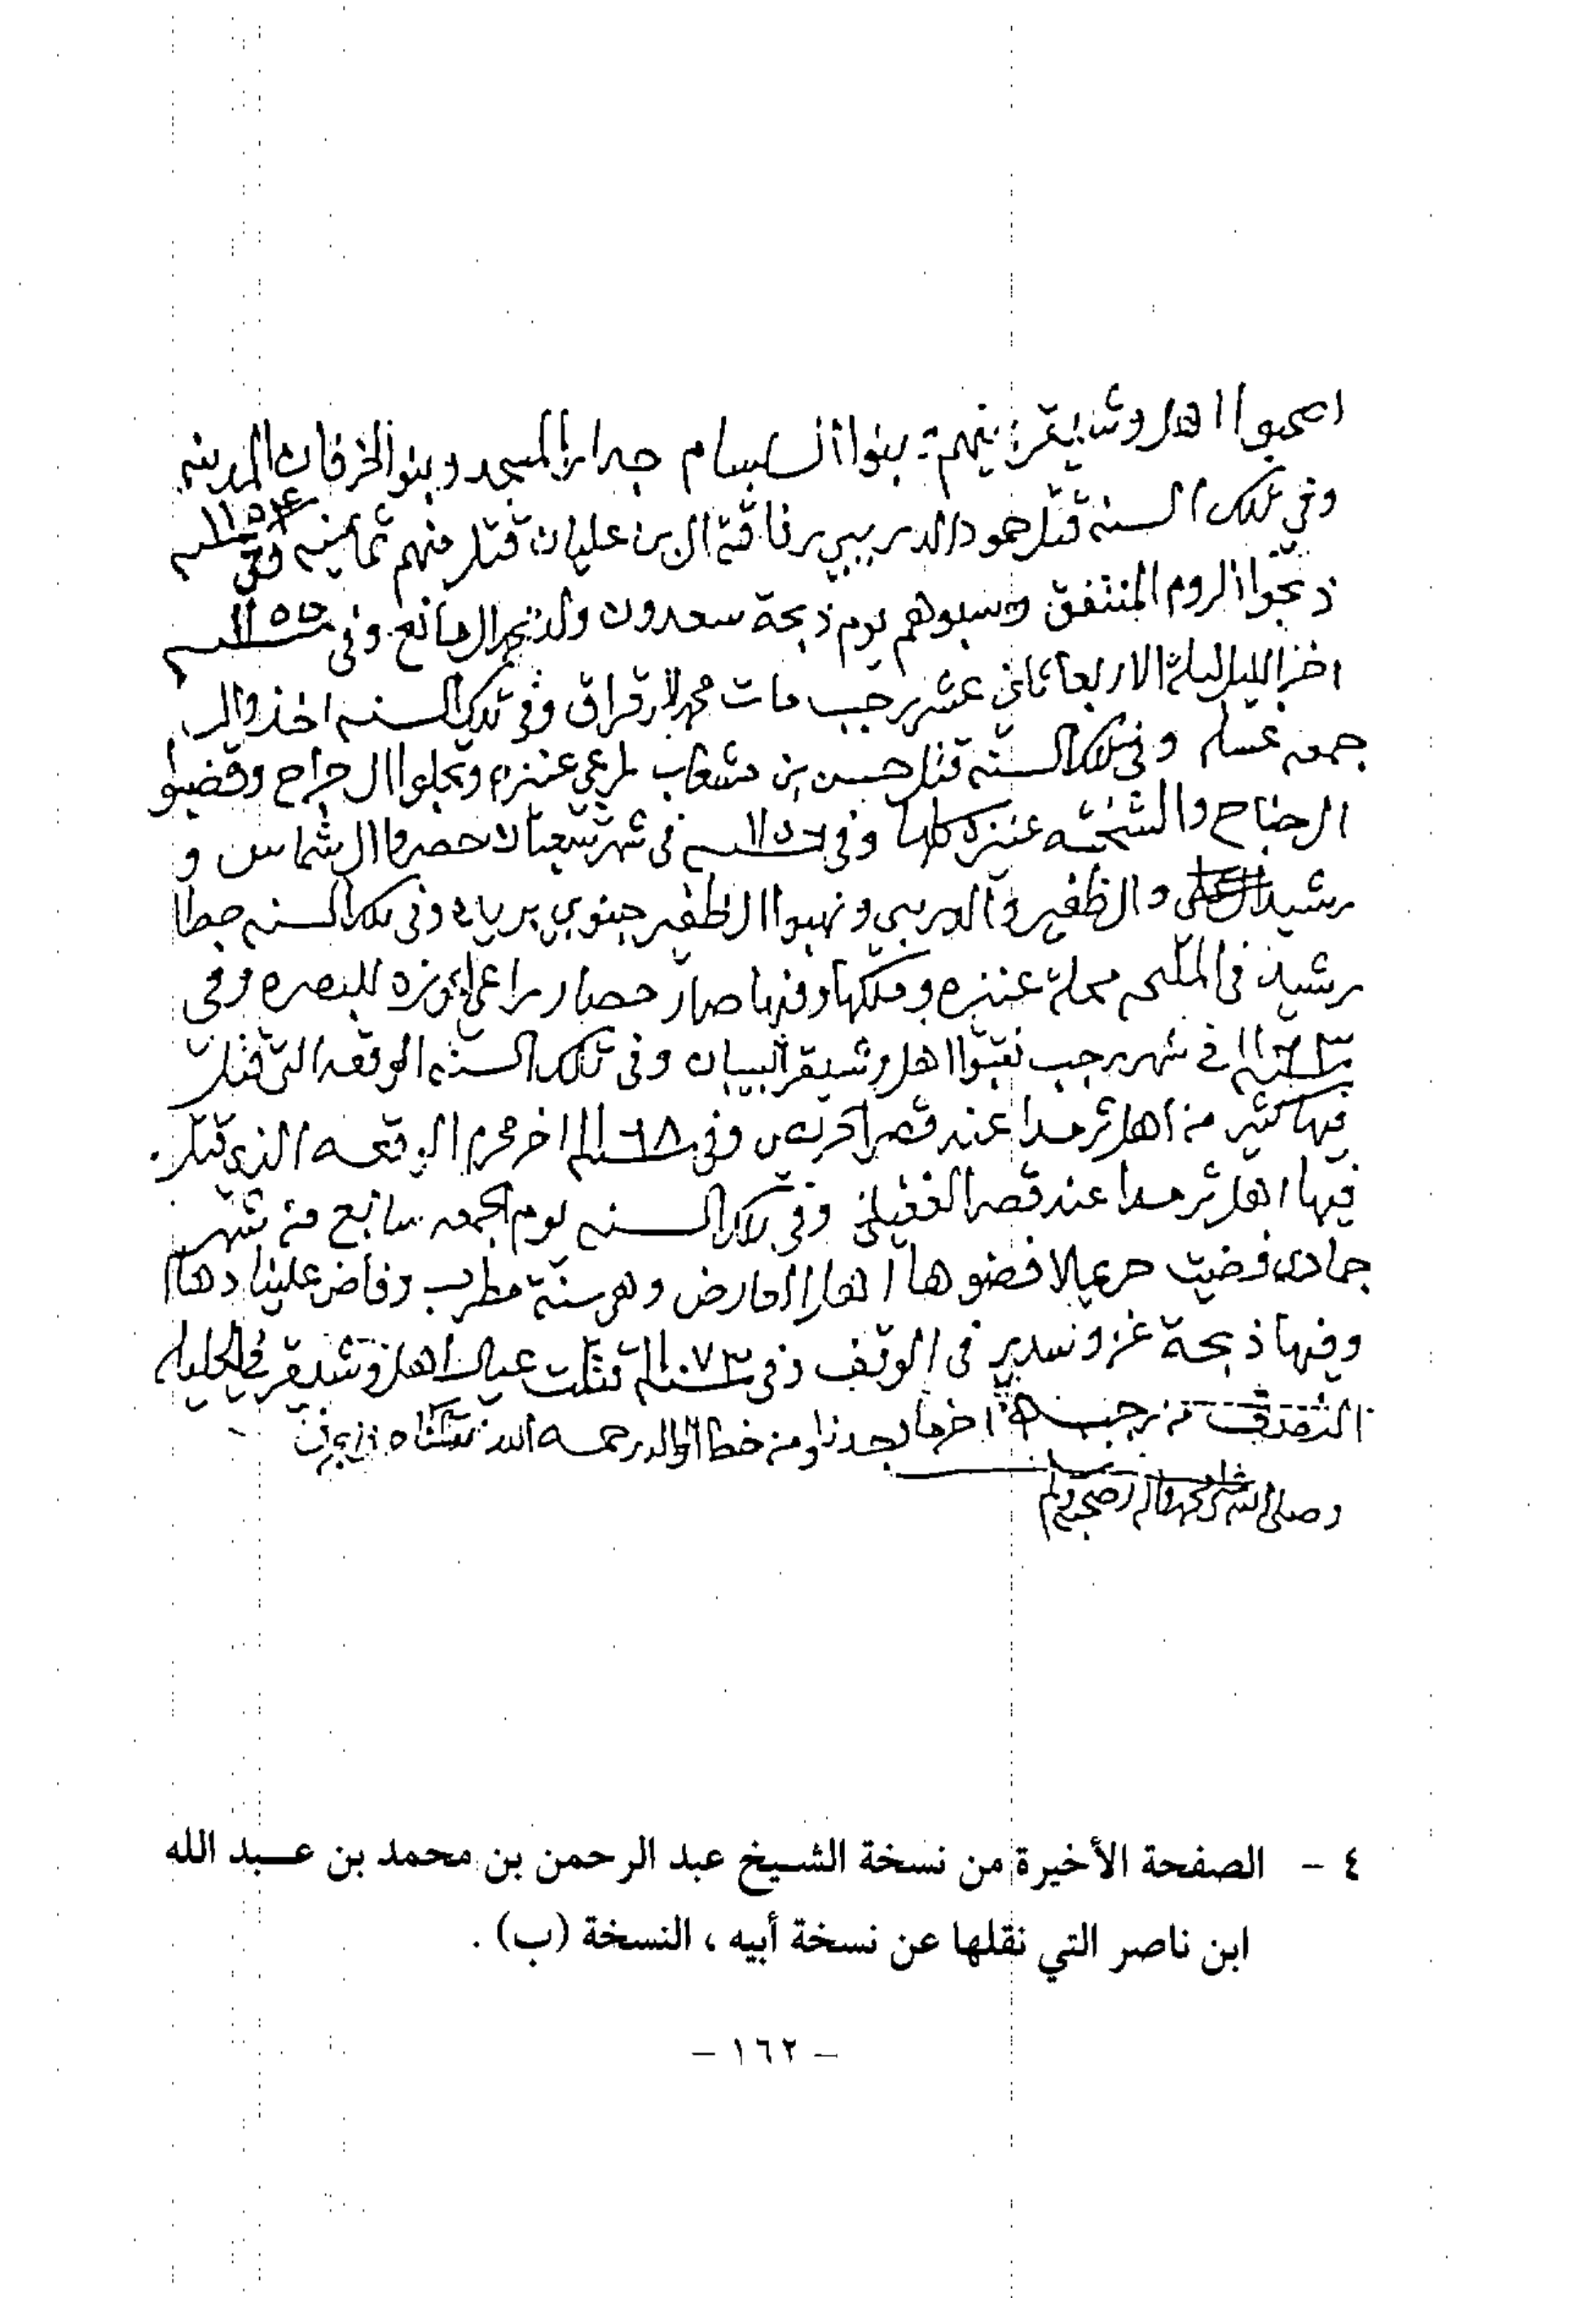 اصحبوا اهل وشيقر بينهم بنوا ال بسام جدار المسجد وبنو الخرفان المدينه
وفي تلك السنه قتل حمود الدريبي رفاقته ال بن عليان قتل منهم ثمانيه وفي سنه ١١٥٤
ذبحوا الروم المنتفق وسبوهم يوم ذبحة سعدون ولد محمد ال مانع وفي سنه ١١٥٥
اخر الليل ليلة الاربعا ثاني عشر رجب مات محمد وفي تلك السنه اخذ وال
جمعه عسله وفي تلك السنه قتل حسن بن مشعاب راعي عنيزه وتجلوا ال جراح وقضبوا
ال جناح والشختة عنيزه كلها وفي سنه ١١٥٦ في شهر شعبان حصروا ال شماس و
رشيد والظفير والدريبي ونهبوا الظفير جنوبي بريده وفي تلك السنه حطا
رشيد في المليحه محلة عنيزه وملكها وفيها صار حصار راعي للبصره وفي
سنه ١١٦٣ في شهر رجب اهل وشيقر البيبان وفي تلك السنه الوقعه التي قتلت
فيها كثير من اهل ثرمدا عند قصر الحريص وفي سنه ١١٦٨ اخر محرم الوقعه الذي قتل
فيها اهل ثرمدا عند قصر الغفيلي وفي تلك السنه يوم الجمعه سابع من شهر
جمادى فضيت حريملا فضوها اهل العارض وهي سنة مطرب وفاض علينا دهاا
وفيها ذبحة غزو سدير في الوقف وفي سنه ١١٧٣ قتلت عيال اهل وشيقر في الحليله
النصف من رجب اخر ما وجدنا من خط الوالد رحمه الله
وصلى الله على محمد واله وصحبه وسلم
٤ - الصفحة الأخيرة من نسخة الشيخ عبد الرحمن بن محمد بن عبد الله
ابن ناصر التي نقلها عن نسخة أبيه ، النسخة (ب) .
- ١٦٢ -